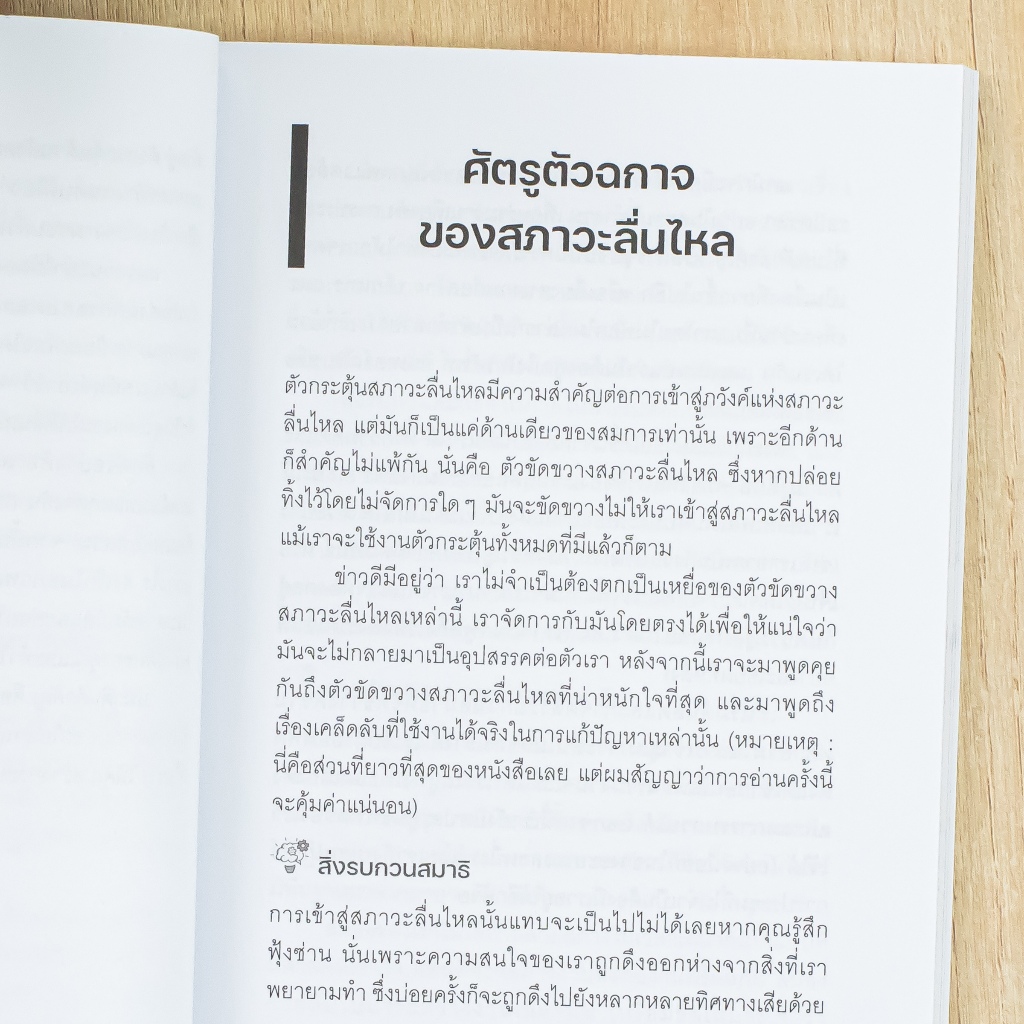 ศัตรูตัวฉกาจ
ของสภาวะลื่นไหล
ตัวกระตุ้นสภาวะลื่นไหลมีความสำคัญต่อการเข้าสู่ภวังค์แห่งสภาวะ
ลื่นไหล แต่มันก็เป็นแค่ด้านเดียวของสมการเท่านั้น เพราะอีกด้าน
ก็สำคัญไม่แพ้กัน นั่นคือ ตัวขัดขวางสภาวะลื่นไหล ซึ่งหากปล่อย
ทิ้งไว้โดยไม่จัดการใด ๆ มันจะขัดขวางไม่ให้เราเข้าสู่สภาวะลื่นไหล
แม้เราจะใช้งานตัวกระตุ้นทั้งหมดที่มีแล้วก็ตาม
ข่าวดีมีอยู่ว่า เราไม่จำเป็นต้องตกเป็นเหยื่อของตัวขัดขวาง
สภาวะลื่นไหลเหล่านี้ เราจัดการกับมันโดยตรงได้เพื่อให้แน่ใจว่า
มันจะไม่กลายมาเป็นอุปสรรคต่อตัวเรา หลังจากนี้เราจะมาพูดคุย
กันถึงตัวขัดขวางสภาวะลื่นไหลที่น่าหนักใจที่สุด และมาพูดถึง
เรื่องเคล็ดลับที่ใช้งานได้จริงในการแก้ปัญหาเหล่านั้น (หมายเหตุ :
นี่คือส่วนที่ยาวที่สุดของหนังสือเลย แต่ผมสัญญาว่าการอ่านครั้งนี้
จะคุ้มค่าแน่นอน)
สิ่งรบกวนสมาธิ
การเข้าสู่สภาวะลื่นไหลนั้นแทบจะเป็นไปไม่ได้เลยหากคุณรู้สึก
ฟุ้งซ่าน นั่นเพราะความสนใจของเราถูกดึงออกห่างจากสิ่งที่เรา
พยายามทำ ซึ่งบ่อยครั้งก็จะถูกดึงไปยังหลากหลายทิศทางเสียด้วย